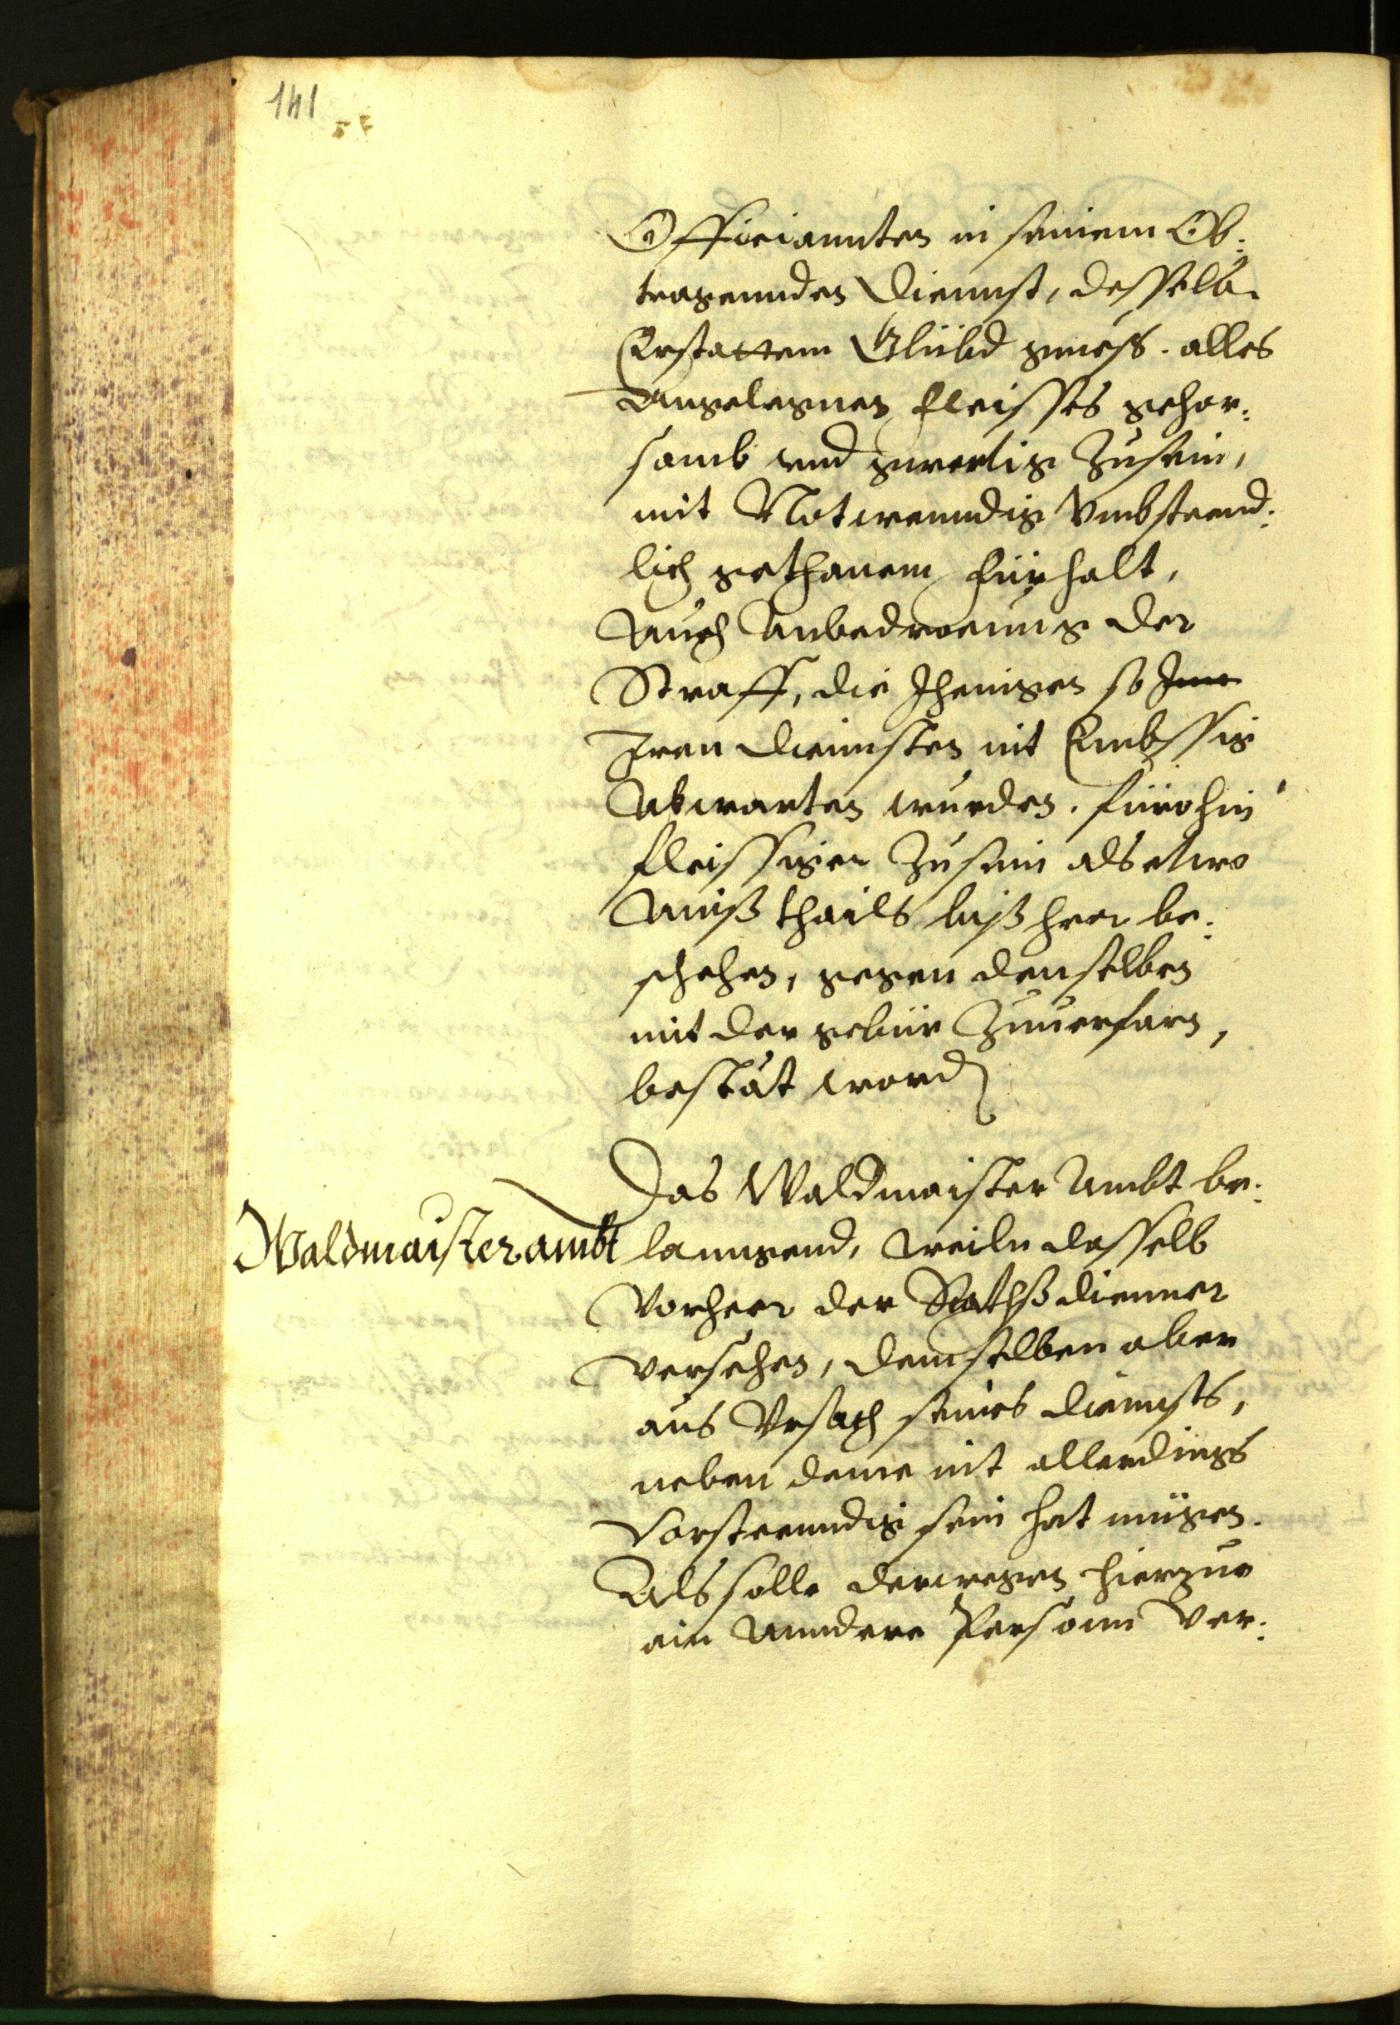 141
Officiannten in seinem Ob:
tragennden Diennst, desselb
Erstattem Glübd gmess. alles
Angelegnen fleisses gehor:
samb und gwertig Zusein,
mit Notwenndig Vmbstennd:
lich gethanem fürhalt,
Auch Anbedroeung der
Straff, die Jhenigen so
Iren diennsten nit Embssig
Abwarten wurden. fürohin
fleissiger Zusein als etwo
Auiß thails bißheer be:
schehen, gegen denselben
mit der gebür Zuuerfarn,
bestät word
Das Waldmaister Ambt be:
Waldmaister ambt
lanngend, weiln dasselb
Vorheer der Rathß dienner
versehen, demselben aber
aus Vrsach seines diennsts,
neben deme nit allerdings
Vorstenndig sein hat mügen.
Als solle derwegen hierzue
ain Anndere Persoon Ver: